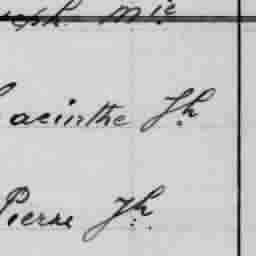 seph Mie
acinthe Jh
Pierre Jh